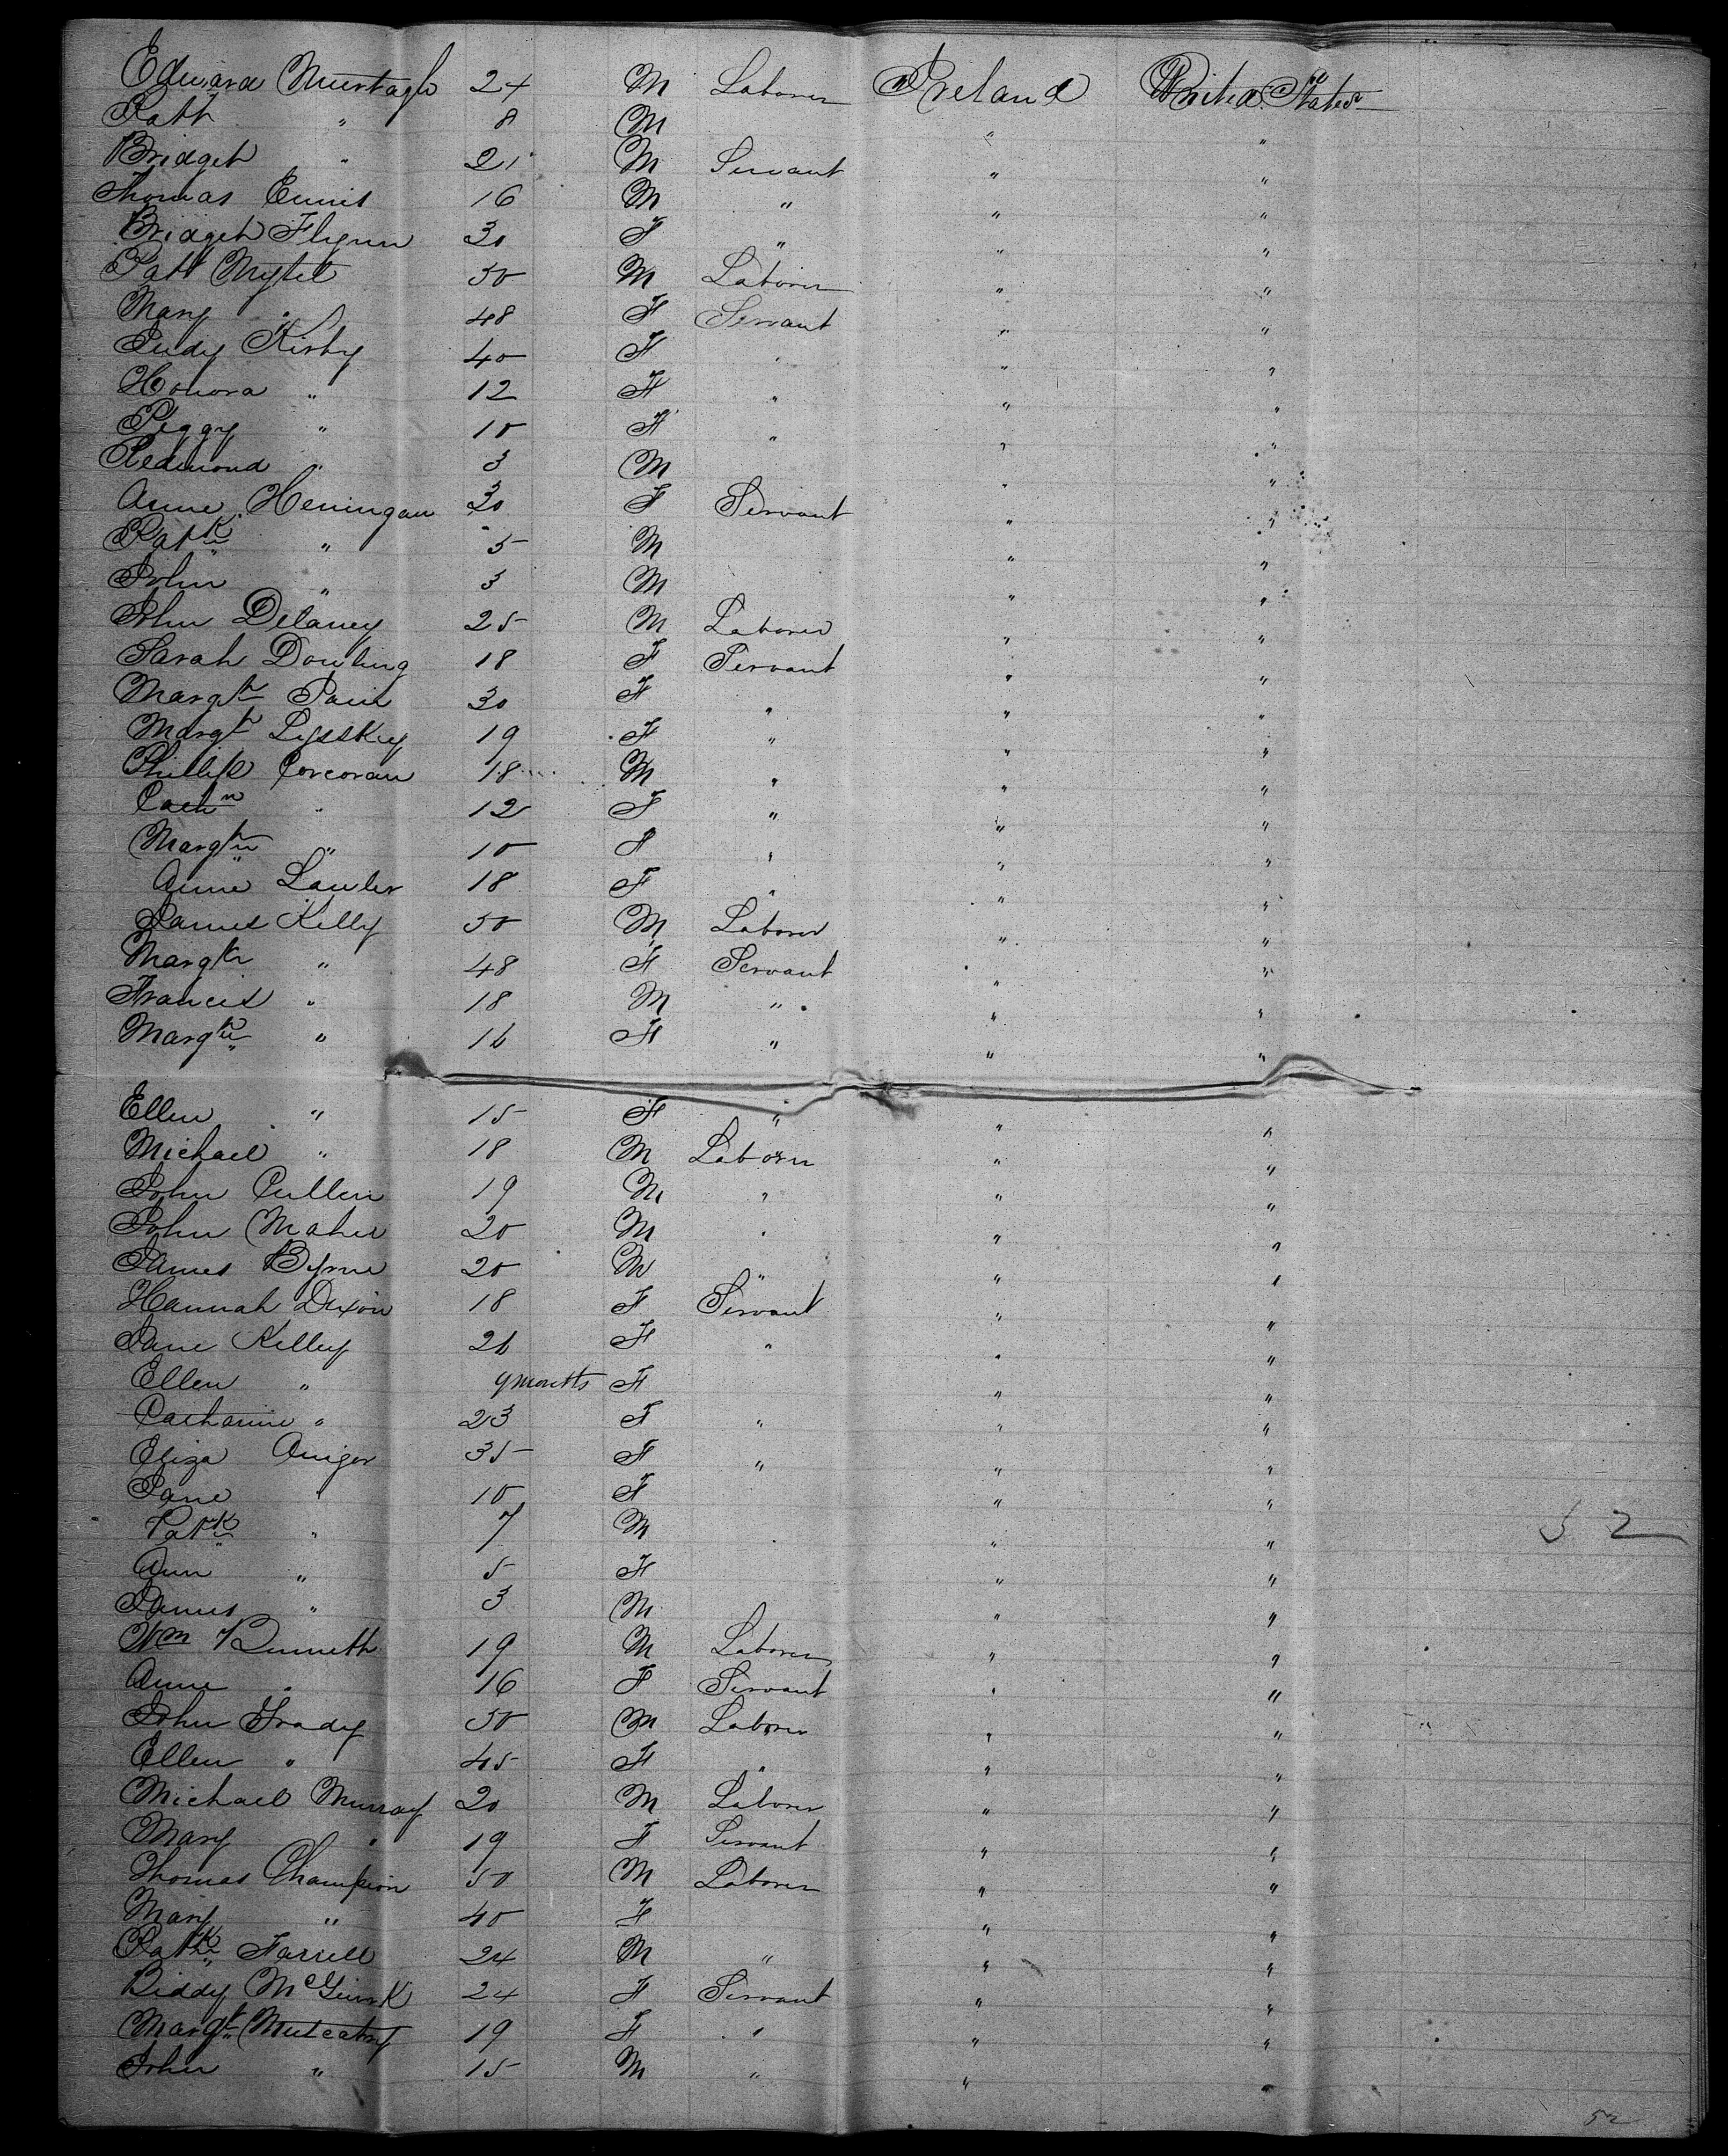 Edward Murtagh 24 M Laborer Ireland United States
Patt " 8 M " "
Bridget " 21 M Servant " "
Thomas Ennis 16 M " " "
Bridget Flynn 30 F " " "
Patt 50 M Laborer " "
Mary " 48 F Servant " "
Judy Kirby 40 F " " "
Honora " 12 F " " "
Peggy " 10 F " " "
Redmond " 3 M " "
Anne Heningan 30 F Servant " "
Patk " 5 M " "
John " 3 M " "
John Delaney 25 M Laborer " "
Sarah Dowling 18 F Servant " "
Margt 30 F " " "
Margt 19 F " " "
Phillip Corcoran 18 M " " "
Cathn " 12 F " " "
Margt " 10 F " " "
Anne Lawler 18 F " " "
James Kelly 50 M Laborer " "
Margt " 48 F Servant " "
Francis " 18 M " " "
Margt " 16 F " " "
Ellen " 15 F " " "
Michael " 18 M Laborer " "
John Cullen 19 M " " "
John Maher 20 M " " "
James Byrne 20 M " " "
Hannah Dixon 18 F Servant " "
Jane Kelley 26 F " " "
Ellen " 9 months F " "
Catharine " 23 F " " "
Eliza 35 F " " "
Jane " 10 F " "
Patk " 7 M " "
Ann " 5 F " "
James " 3 M " "
Wm 19 M Laborer " "
Anne " 16 F Servant " "
John Grady 50 M Laborer " "
Ellen " 45 F " " "
Michael Murray 20 M Laborer " "
Mary " 19 F Servant " "
Thomas Champion 50 M Laborer " "
Mary " 40 F " "
Patk Farrell 24 M " " "
Biddy McGuirk 24 F Servant " "
Margt 19 F " " "
John " 15 M " " "
52
52